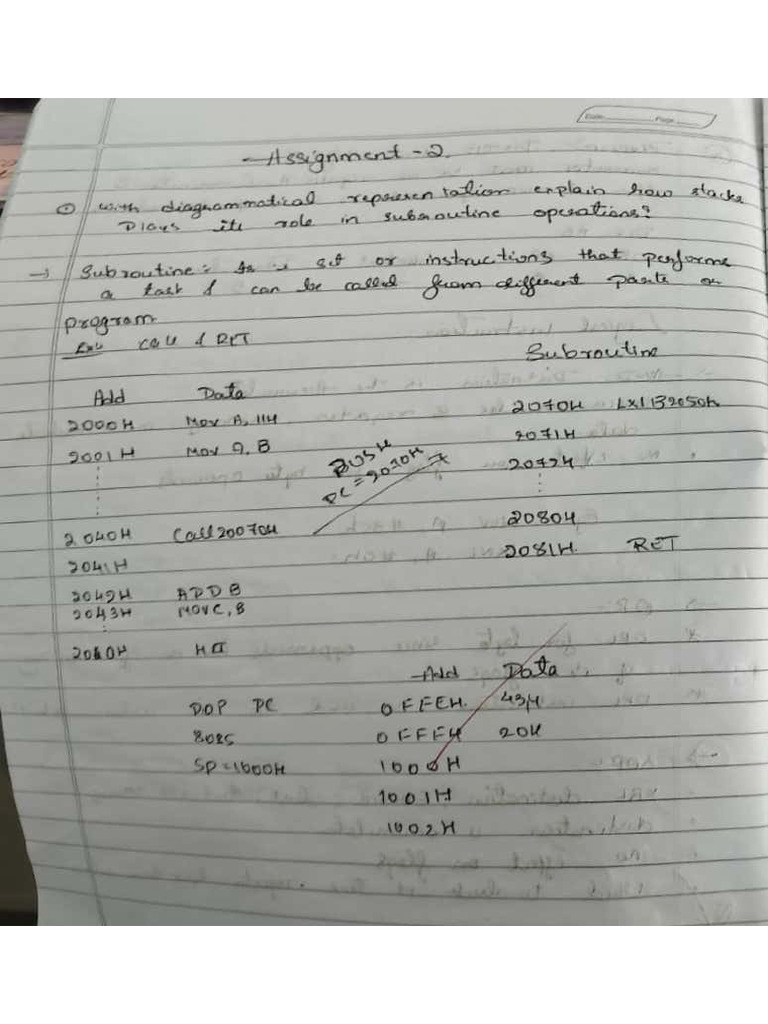 Date Page
Assignment - 2.
① with diagrammatical representation explain how stacks
Plays its role in subroutine operations?
→ Subroutine: is a set or instructions that performs
a task & can be called from different parts or
program
Ex: Call & RET
Subroutine
Add Data
2000H Mov A, 11H 2070H LXI B2050h
2001H Mov A, B 2071H
PUSH
PC = 2070H
2072H
2040H Call 20070H 2080H
2041H 2081H. RET
2042H ADD B
2043H MOV C, B
2060H Hlt
Add Data
POP PC 0FFEH. 43H
8085 0FFFH 20H
SP = 1000H 1000H
1001H
1002H